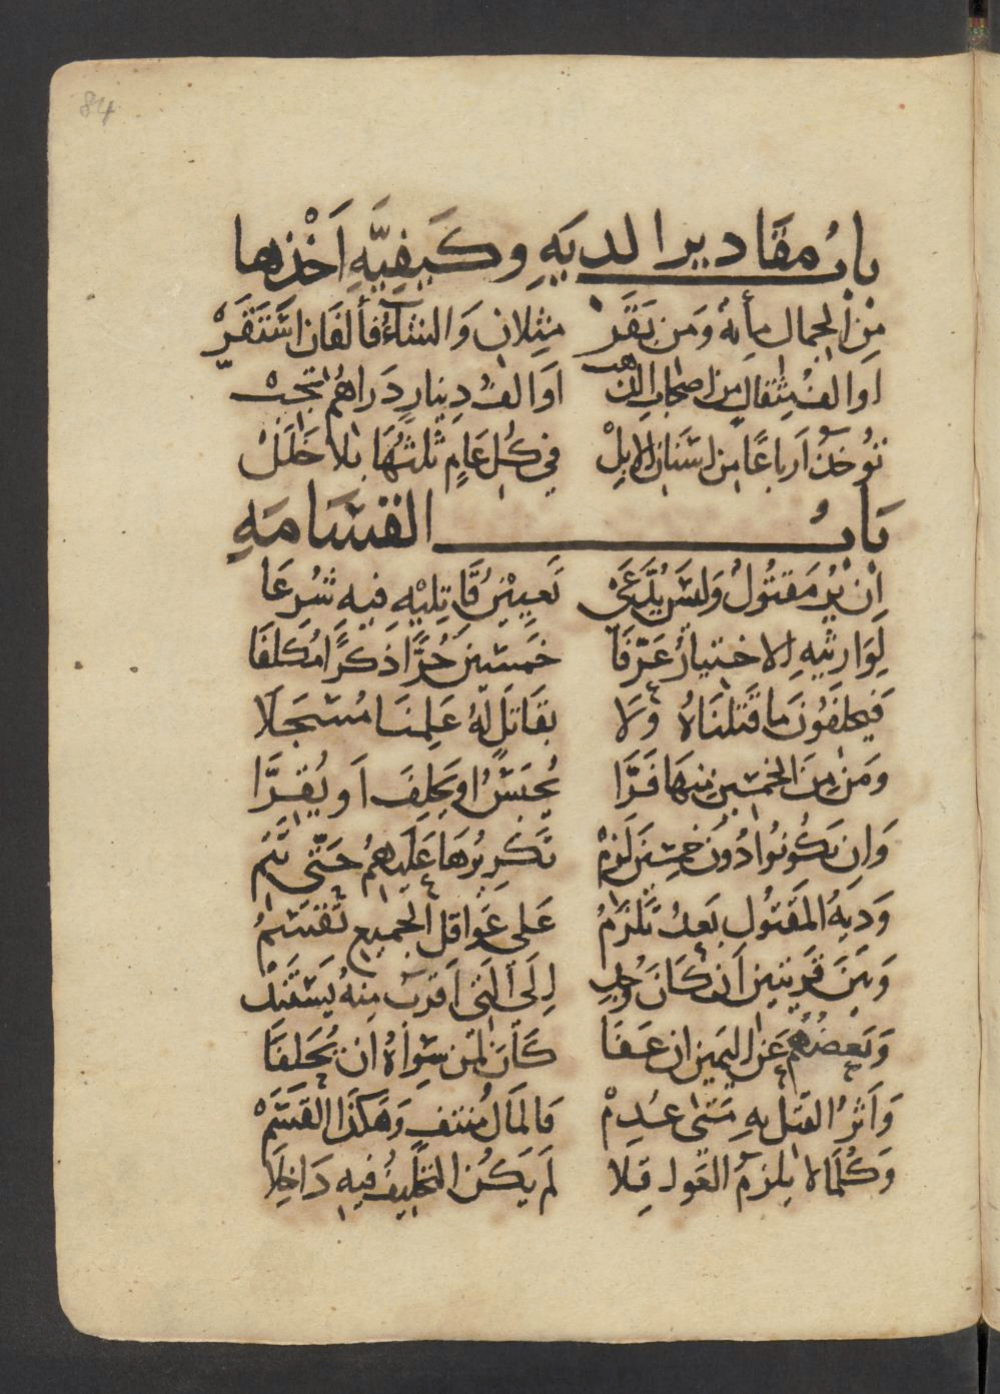 84
بابُ مقَادير الديَةِ وكَيفِيَّةِ اَخْذِها
مِنْ الجمال مأيةٌ وَمَن بَقَرْ مثلان وَالشاءُ فألفَان اسْتَقَرّْ
اَوالفُ مِثقالٍ من اصحاب الذهب اَوَالفُ دِينارٍ دَراهمٌ تجبْ
تُوخذُ اَرباعًا من اسنان الابِلْ في كُلِ عَامٍ ثُلثُهَا بلا خَلَلْ
بَابُ القسَامَةِ
اِنْ يُرَ مَقتُولٌ وَليسَ يُدَّعَىْ تَعيِيْنُ قَاتِليْهِ فيهِ شُرِعَا
لِوَارِثيهِ الاختيارُ عَرِّفَا خمسينَ حُرًّا ذكرًا مُكلفَا
فَيحلفُونَ ماقَتلنَاهُ وَلَا بقَاتلٍ لهُ عَلِمنَا مُسْجَلَا
ومَن مِنَ الخمسِين منهَا فَرَّا يُحبَسُ اويَحلِفَ اَو يُقِرَّا
وَاِن يَكُونُوا دُونَ خمسِينَ لَزِمْ تَكرِيرُهَا عَليهِمُ حَتَّى تَتم
وَديَةُ المَقتُول بَعدُ تَلزَمُ عَلى عَوَاقلِ الجميعِ تُقسَمُ
وَبَينَ قَريتينِ اَن كَانَ وُجِدِ اِلَى الَّتى اَقرَبُ مِنهُ يَستَنِدْ
وَبَعضُهُم عَن اليَمين ان عَفَا كَانَ لمَن سِوَاهُ ان يُحَلِفَا
وَاَثرُ القَتل بهِ مَتَى عُدِمْ فَالمَالُ مُنتفٍ وَهَكَذَا القَسَمْ
وَكُلَّمَا لا يلزمُ القول فِلا لَم يَكُن التحليفُ فيهِ دَاخِلَا